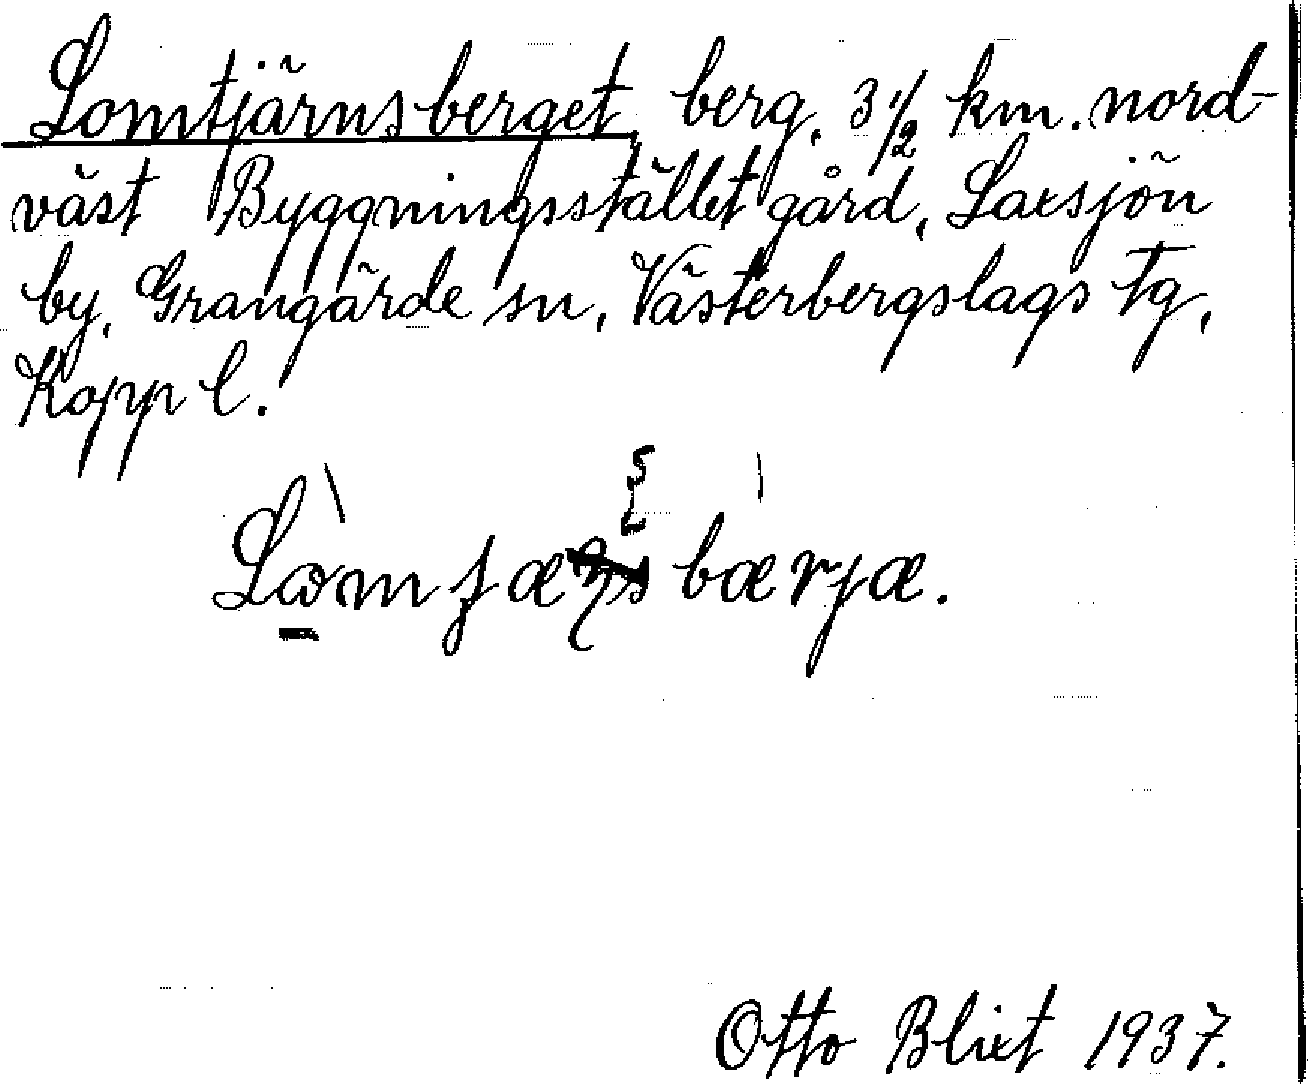 Lomtjärnsberget, berg, 3 1/2 km. nord-
väst Byggningsstället gård, Laxsjön
by, Grangärde sn, Västerbergslags Tg,
Kopp l.
Otto Blixt 1937.